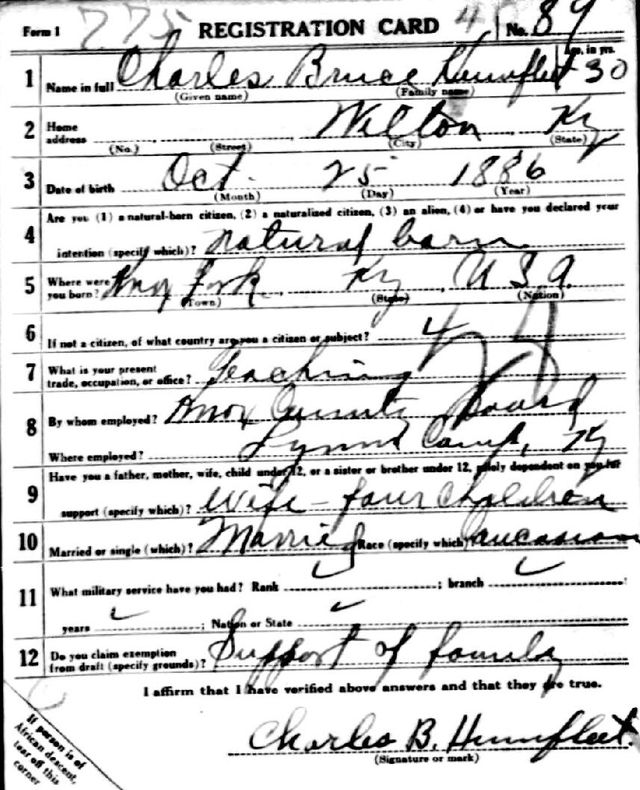 Form 1 775 REGISTRATION CARD 45 No. 89
1 Name in full Charles Bruce Humfleet Age, in yrs. 30
(Given name) (Family name)
2 Home address Wilton, Ky
(No.) (Street) (City) (State)
3 Date of birth Oct. 25 1886
(Month) (Day) (Year)
4 Are you (1) a natural-born citizen, (2) a naturalized citizen, (3) an alien, (4) or have you declared your
intention (specify which)? natural born
5 Where were you born? Knox Fork, Ky, U.S.A.
(Town) (State) (Nation)
6 If not a citizen, of what country are you a citizen or subject?
7 What is your present trade, occupation, or office? Teaching
8 By whom employed? Knox County Board
Where employed? Lynn Camp, Ky
9 Have you a father, mother, wife, child under 12, or a sister or brother under 12, solely dependent on you for
support (specify which)? Wife - four children
10 Married or single (which)? Married Race (specify which)? Caucasian
11 What military service have you had? Rank ; branch
years ; Nation or State
12 Do you claim exemption from draft (specify grounds)? Support of family
I affirm that I have verified above answers and that they are true.
Charles B. Humfleet.
(Signature or mark)
If person is of
African descent,
tear off this
corner